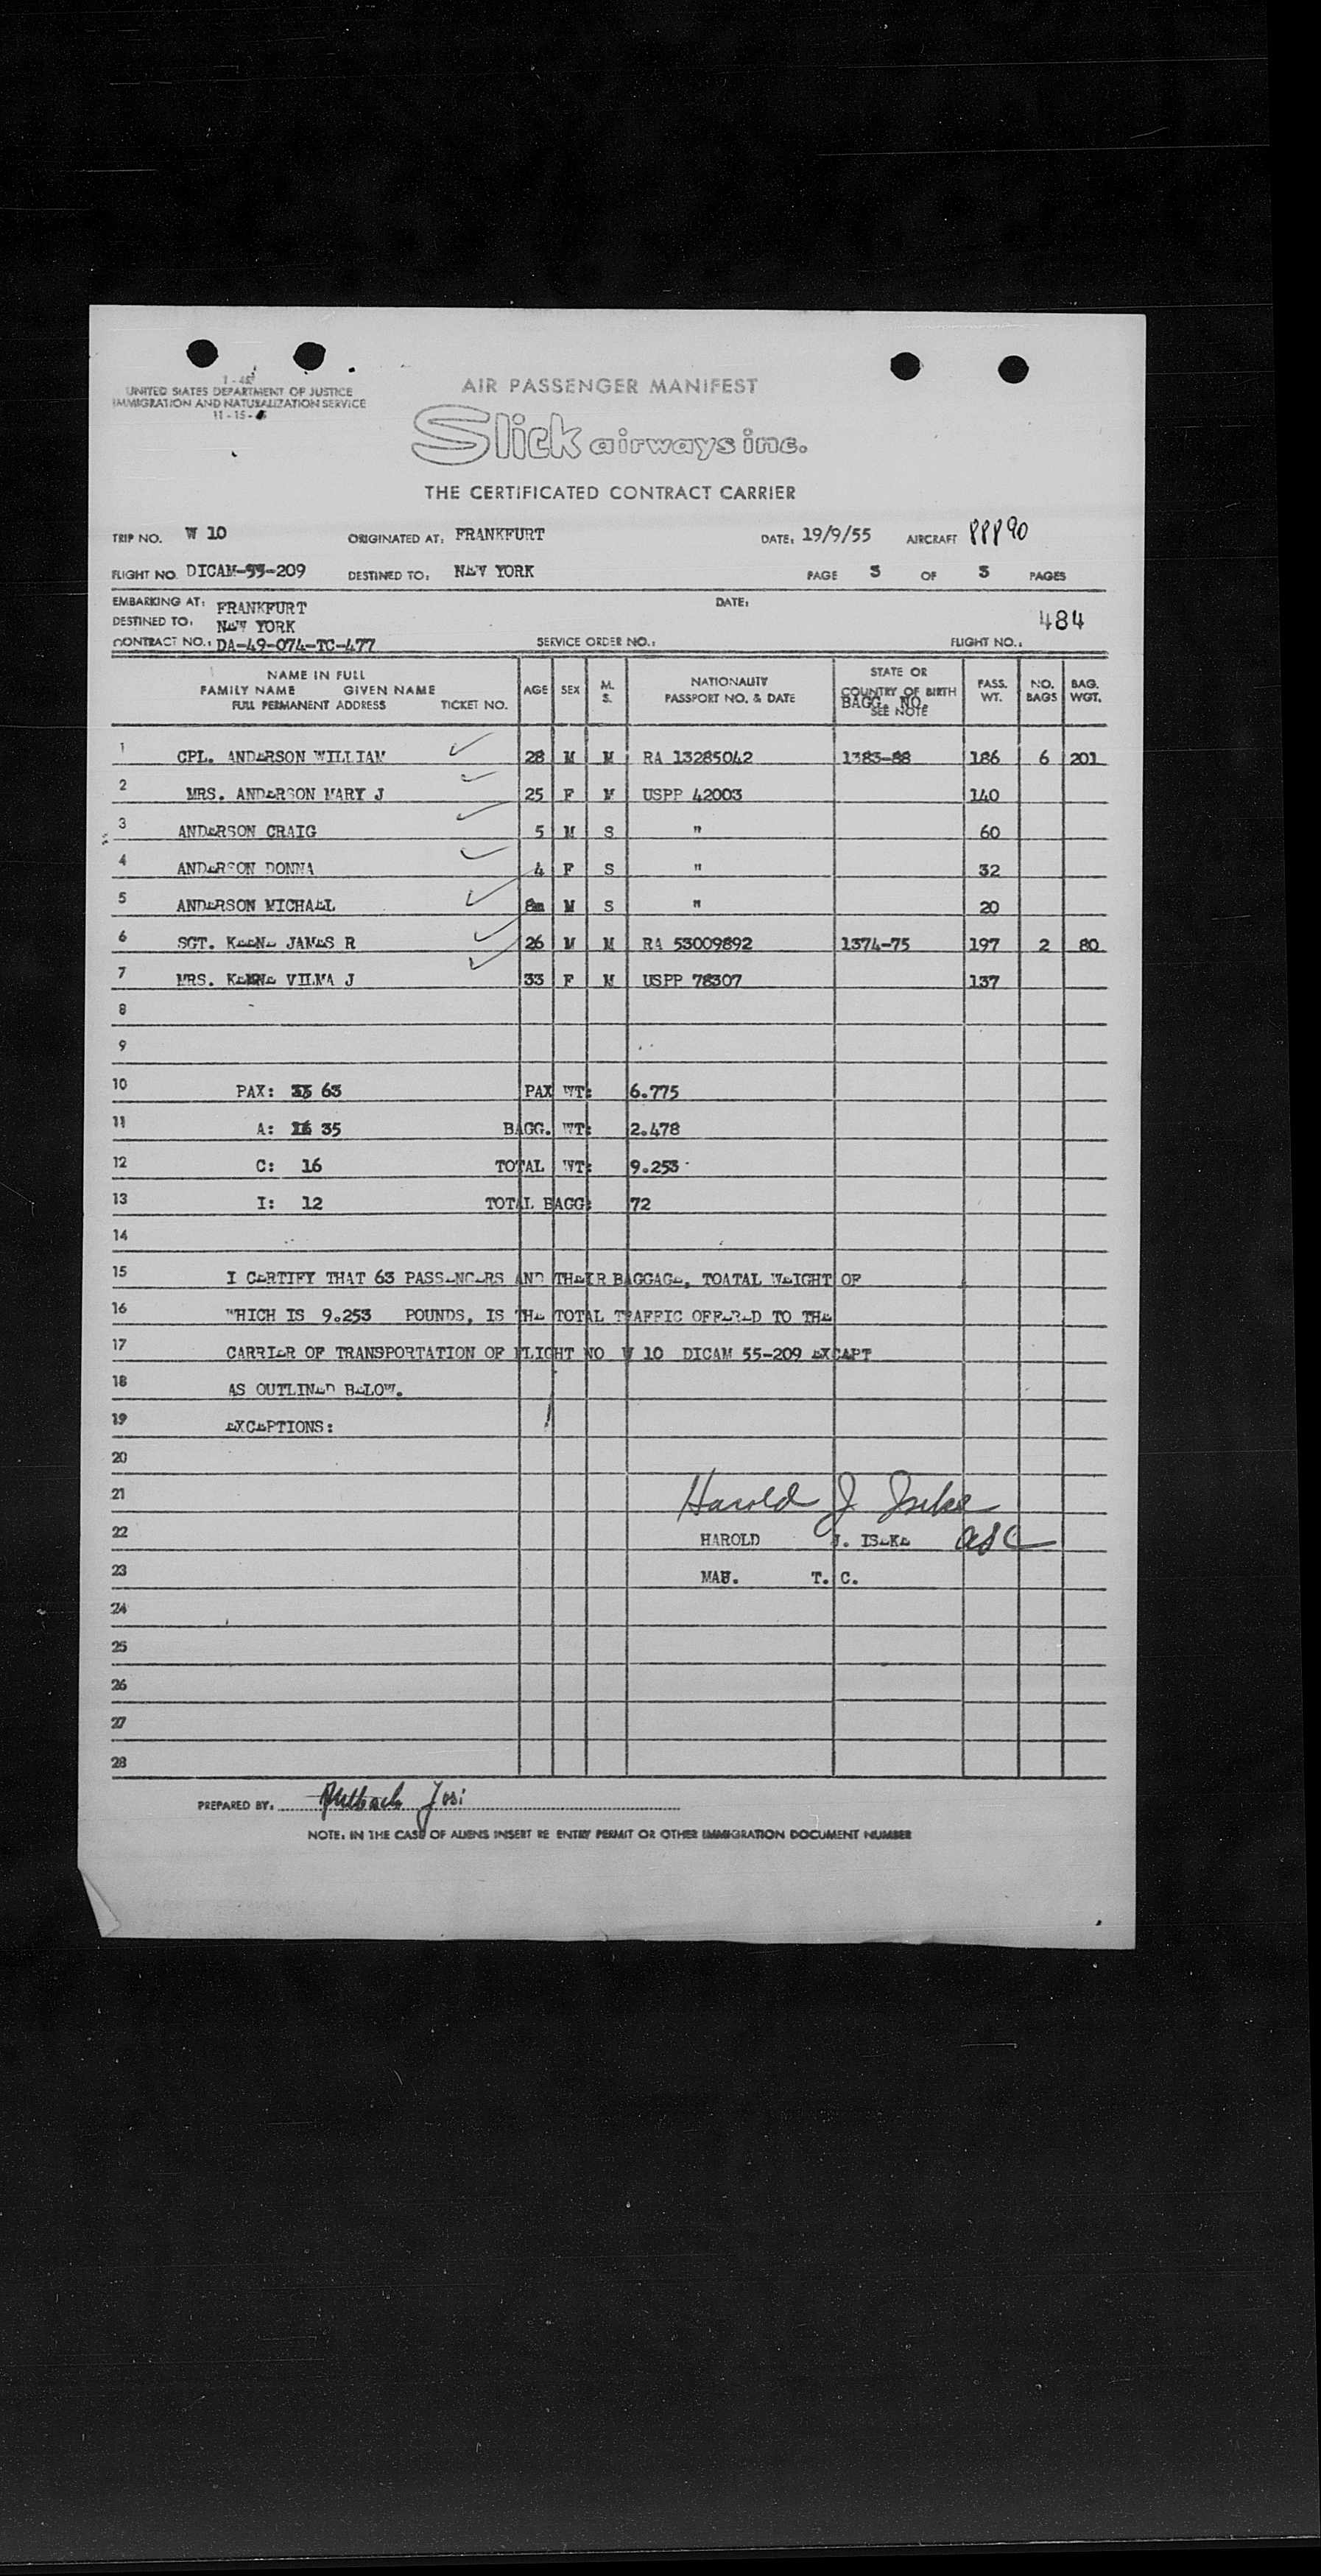 I - 48
UNITED STATES DEPARTMENT OF JUSTICE
IMMIGRATION AND NATURALIZATION SERVICE
11 - 15 -
AIR PASSENGER MANIFEST
Slick airways inc.
THE CERTIFICATED CONTRACT CARRIER
TRIP NO. W 10 ORIGINATED AT: FRANKFURT DATE: 19/9/55 AIRCRAFT
FLIGHT NO. DICAM-55-209 DESTINED TO: NEW YORK PAGE 3 OF 3 PAGES
EMBARKING AT: FRANKFURT DATE:
DESTINED TO: NEW YORK 484
CONTRACT NO.: DA-49-074-TC-477 SERVICE ORDER NO.: FLIGHT NO.:
NAME IN FULL
FAMILY NAME GIVEN NAME
FULL PERMANENT ADDRESS TICKET NO. AGE SEX M. S. NATIONALITY PASSPORT NO. & DATE STATE OR COUNTRY OF BIRTH BAGG. NO. SEE NOTE PASS. WT. NO. BAGS BAG. WGT.
1 CPL. ANDERSON WILLIAM 28 M M RA 13285042 1383-88 186 6 201
2 MRS. ANDERSON MARY J 25 F M USPP 42003 140
3 ANDERSON CRAIG 5 M S " 60
4 ANDERSON DONNA 4 F S " 32
5 ANDERSON MICHAEL 8m M S " 20
6 SGT. KEENE JAMES R 26 M M RA 53009892 1374-75 197 2 80
7 MRS. KEENE VILMA J 33 F M USPP 78307 137
8
9
10 PAX: 63 PAX WT: 6.775
11 A: 35 BAGG. WT: 2.478
12 C: 16 TOTAL WT: 9.253
13 I: 12 TOTAL BAGG: 72
14
15 I CERTIFY THAT 63 PASSENGERS AND THEIR BAGGAGE, TOATAL WEIGHT OF
16 WHICH IS 9.253 POUNDS, IS THE TOTAL TRAFFIC OFFERED TO THE
17 CARRIER OF TRANSPORTATION OF FLIGHT NO W 10 DICAM 55-209 EXCAPT
18 AS OUTLINED BELOW.
19 EXCEPTIONS:
20
21 Harold J Iseke
22 HAROLD J. ISEKE
23 MAJ. T. C.
24
25
26
27
28
PREPARED BY:
NOTE: IN THE CASE OF ALIENS INSERT RE ENTRY PERMIT OR OTHER IMMIGRATION DOCUMENT NUMBER